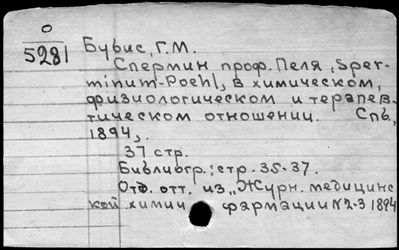 О
5281
Бубис, Г.М.
Спермин проф. Пеля, (Sper-
minum-Poehl), в химическом,
физиологическом и терапев-
тическом отношении. Спб,
1894,.
37 стр.
Библиогр.: стр. 35-37.
Отд. отт. из „Журн. медицинс
кой химии фармации N2-3 1894